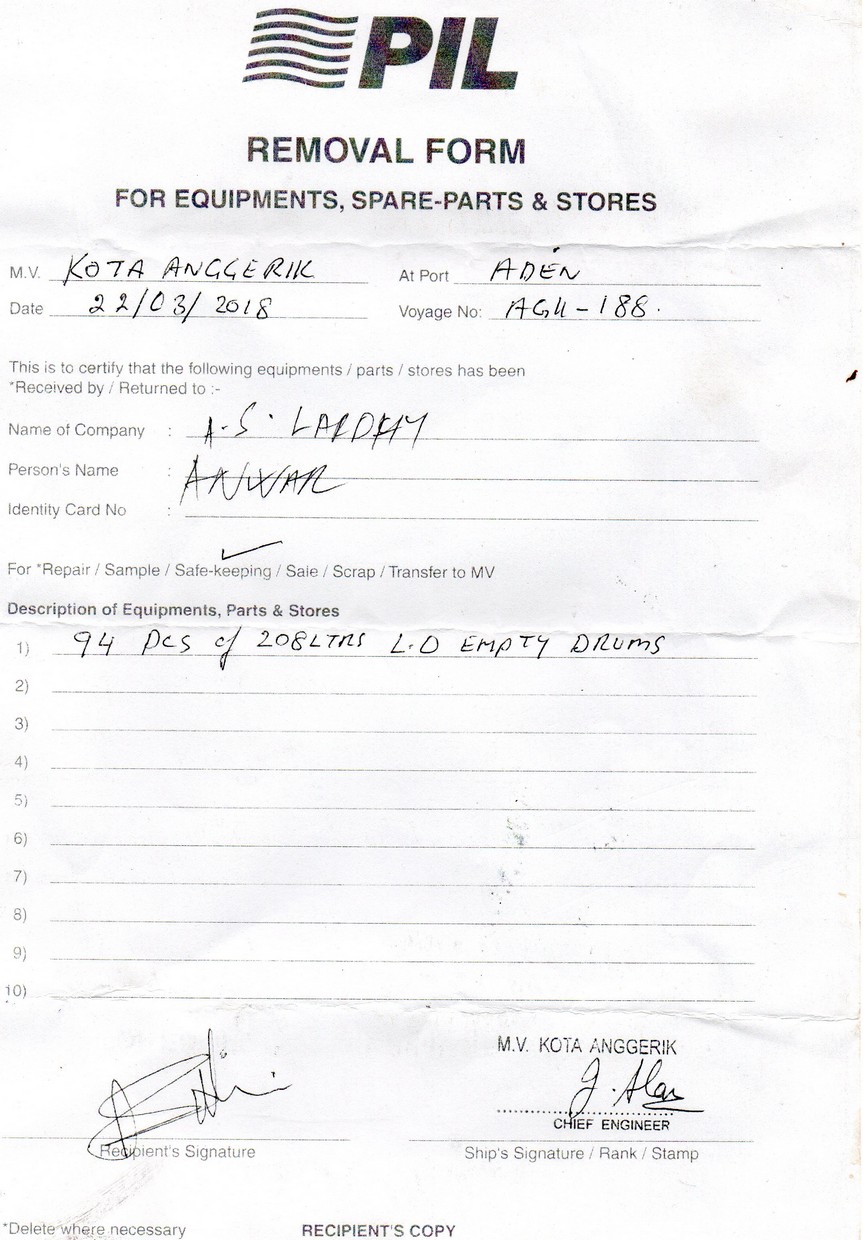 PIL
REMOVAL FORM
FOR EQUIPMENTS, SPARE-PARTS & STORES
M.V. KOTA ANGGERIK At Port ADEN
Date 22/03/2018 Voyage No: AGK-188.
This is to certify that the following equipments / parts / stores has been
*Received by / Returned to :-
Name of Company : A.S.
Person's Name : ANWAR
Identity Card No :
For *Repair / Sample / Safe-keeping / Sale / Scrap / Transfer to MV
Description of Equipments, Parts & Stores
1) 94 PCS of 208LTRS L.O EMPTY DRUMS
2)
3)
4)
5)
6)
7)
8)
9)
10)
M.V. KOTA ANGGERIK
CHIEF ENGINEER
Recipient's Signature Ship's Signature / Rank / Stamp
*Delete where necessary RECIPIENT'S COPY